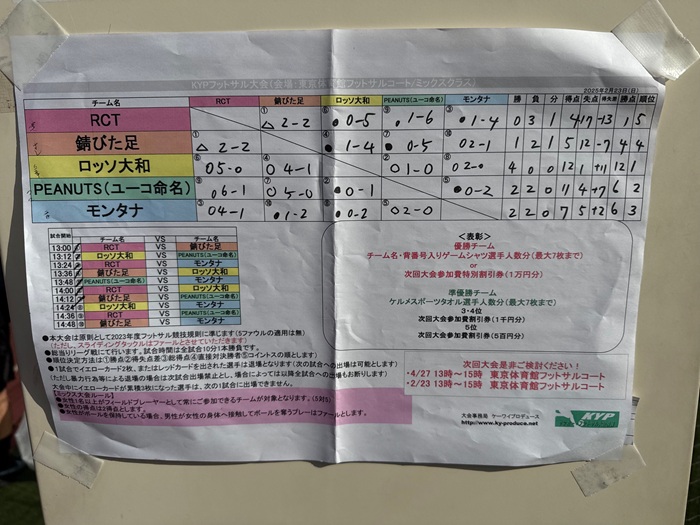 KYPフットサル大会(会場:東京体育館フットサルコート/ミックスクラス)
2025年2月23日(日)
チーム名 RCT 錆びた足 ロッソ大和 PEANUTS(ユーコ命名) モンタナ 勝 負 分 得点 失点 得失差 勝点 順位
RCT ① △ 2-2 ⑥ ● 0-5 ⑨ ● 1-6 ③ ● 1-4 0 3 1 4 17 -13 1 5
錆びた足 ① △ 2-2 ④ ● 1-4 ⑦ ● 0-5 ⑩ 0 2-1 1 2 1 5 12 -7 4 4
ロッソ大和 ⑥ 0 5-0 ④ 0 4-1 ② 0 1-0 ⑧ 0 2-0 4 0 0 12 1 +11 12 1
PEANUTS(ユーコ命名) 0 6-1 ⑦ 0 5-0 ② ● 0-1 ⑤ ● 0-2 2 2 0 11 4 +7 6 2
モンタナ ③ 0 4-1 ⑩ ● 1-2 ⑧ ● 0-2 ⑤ 0 2-0 2 2 0 7 5 +2 6 3
試合開始 チーム名 VS チーム名
13:00 RCT VS 錆びた足
13:12 ロッソ大和 VS PEANUTS(ユーコ命名)
13:24 RCT VS モンタナ
13:36 錆びた足 VS ロッソ大和
13:48 PEANUTS(ユーコ命名) VS モンタナ
14:00 RCT VS ロッソ大和
14:12 錆びた足 VS PEANUTS(ユーコ命名)
14:24 ロッソ大和 VS モンタナ
14:36 RCT VS PEANUTS(ユーコ命名)
14:48 錆びた足 VS モンタナ
<表彰>
優勝チーム
チーム名・背番号入りゲームシャツ選手人数分(最大7枚まで)
or
次回大会参加費特別割引券(1万円分)
準優勝チーム
ケルメスポーツタオル選手人数分(最大7枚まで)
3・4位
次回大会参加費割引券(1千円分)
5位
次回大会参加費割引券(5百円分)
●本大会は原則として2023年度フットサル競技規則に準じます(5ファウルの適用は無)
(ただし、スライディングタックルはファールとさせていただきます)
●総当りリーグ戦にて行います。試合時間は全試合10分1本勝負です。
●順位決定方法は①勝点②得失点差③総得点④直接対決勝者⑤コイントスの順とします
●1試合でイエローカード2枚、またはレッドカードを出された選手は退場となります(次の試合への出場は可能とします)
(ただし、暴力行為等による退場の場合は次試合出場禁止とし、場合によっては以降全試合への出場もお断りします)
大会中にイエローカードが累積3枚になった選手は、次の1試合に出場できません。
【ミックス大会ルール】
●女性1名以上がフィールドプレーヤーとして常にご参加できるチームが対象となります。(5対5)
●女性の得点は2得点とします。
●女性がボールを保持している場合、男性が女性の身体へ接触してボールを奪うプレーはファールとします。
次回大会是非ご検討ください!
・4/27 13時~15時 東京体育館フットサルコート
・2/23 13時~15時 東京体育館フットサルコート
大会事務局 ケーワイプロデュース
http://www.ky-produce.net
KYP